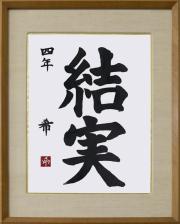 結実
四年
希